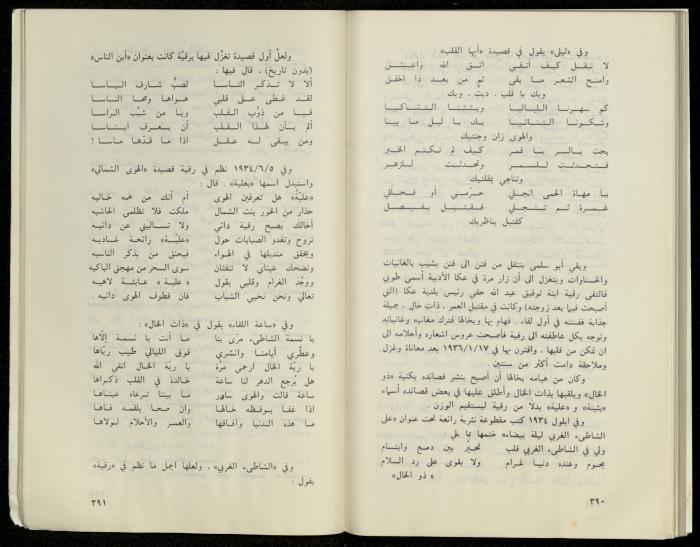 وفي «ليلى» يقول في قصيدة «أيها القلب»
لا تقل كيف أتقي اتق الله واعشق
وامنح الشعر ما بقي ثم من بعد ذا اخفق
ويك يا قلب ، ديث ، ويك
كم سهرنا اللياليا وبثثنا التشاكيا
وشكونا التنائيا بك يا ليل ما بيا
والهوى زان وجنتيك
بحت بالسر يا قمر كيف لم تكتم الخبر
فتحدثت للسمر وتحدثت للزهر
وتناجي بمقلتيك
يا مهاة الحمى انجلي حرّمي أو فحللي
غمرة لم تنجلي فقتيل بفيصل
كقتيل بناظريك
وبقي أبو سلمى يتنقل من فنن الى فنن يشبب بالغانيات
والحسناوات ويتغزل الى أن زار مرة في عكا الأديبة أسمى طوبي
فالتقى رقية ابنة توفيق عبد الله حقي رئيس بلدية عكا (التي
أصبحت فيما بعد زوجته) وكانت في مقتبل العمر ، ذات خال ، جميلة
جذابة ففتنته في أول لقاء . فهام بها وبخالها فترك مغانيه وغانياته
وتوجه بكل عاطفته الى رقية فأصبحت عروس اشعاره وأحلامه الى
ان تمكن من قلبها ، واقترن بها في ١٩٣٦/١/١٧ بعد معاناة وغزل
وملاحقة دامت أكثر من سنتين .
وكان من هيامه بخالها أن أصبح ينشر قصائده بكنية «ذو
الخال» ويلقبها بذات الخال وأطلق عليها في بعض قصائده أسماء
«بثينة» و «علية» بدلا من رقية ليستقيم الوزن .
وفي ايلول ١٩٣٤ كتب مقطوعة نثرية رائعة تحت عنوان «على
الشاطىء الغربي ليلة بيضاء» ختمها بما يلي :
ولي في الشاطىء الغربي قلب تحير بين دمع وابتسام
يحوم وعنده دنيا غرام ولا يقوى على رد السلام
« ذو الخال»
٣٩٠
ولعل أول قصيدة تغزّل فيها برقيّة كانت بعنوان «أين الناس»
(بدون تاريخ) ، قال فيها :
ألا لا تذكر الناسا لصبّ شارف الياسا
لقد غطى على قلبي هواها ومحا الناسا
فيا من ذوّب القلب ويا من شيّب الراسا
ألم يأن لهذا القلب أن يعرف ايناسا
ومن يبقى له عقل اذا ما قدّها ماسا ؟
وفي ١٩٣٤/٦/٥ نظم في رقية قصيدة «الهوى الشمالي»
واستبدل اسمها «بعلية» . قال :
«عليّة» هل تعرفين الهوى أم أنك من همه خاليه
حذار من الحور بنت الشمال ملكت فلا تظلمي الحاشيه
أخالك يصبح رقية دائي ولا تساليني عن دائيه
تروح وتغدو الصبابات حول «عليّة» رائحة غاديه
ويخفق منديلها في الهواء فيحنق من يذكر الناسيه
وتضحك عيناي لا تنفثان سوى السحر من مهجتي الباكيه
ووجْد الغرام وقلبي يقول «علية» عابثة لاهيه
تعالي ونحن نحيي الشباب فان قطوف الهوى دانيه .
وفي «ساعة اللقاء» يقول في «ذات الخال» :
يا نسمة الشاطىء مرّى بنا ما أنت يا نسمة إلّاها
وعطّري أيامنا وانشري فوق الليالي طيب ريّاها
يا ربّة الخال ارحمي مرّة يا ربّة الخال اتقي الله
هل يُرجع الدهر لنا ساعة خالدة في القلب ذكراها
ساعة قالت والهوى سافر ما بيننا ترعاه عيناها
اذا غفا يوقظه خالها وان صحا يلقمه فاها
ما هذه الدنيا وآفاقها والعمر والأحلام لولاها
وفي «الشاطىء الغربي» . ولعلها اجمل ما نظم في «رقية»
يقول :
٣٩١